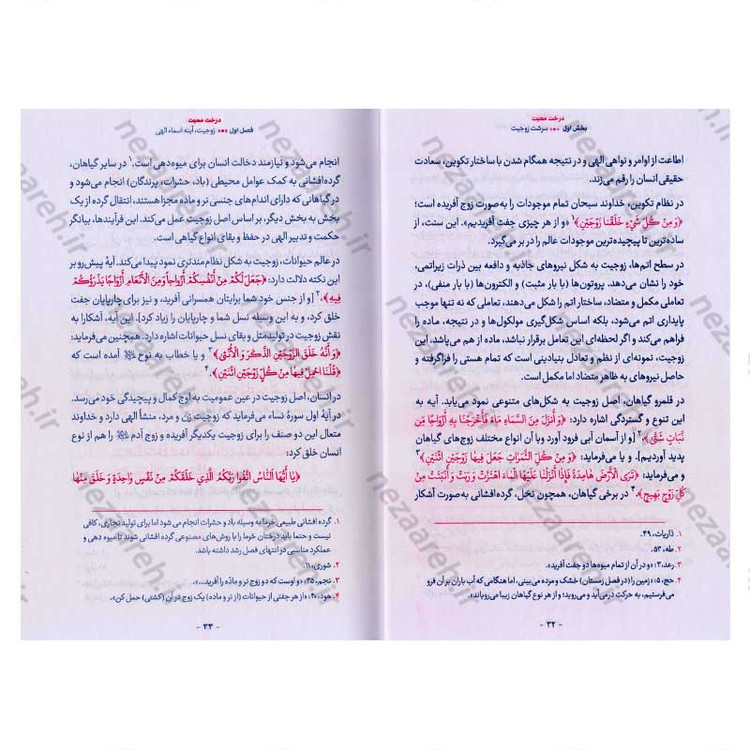 درخت محبت
بخش اول ••• سرشت زوجیت
اطاعت از اوامر و نواهی الهی و در نتیجه همگام شدن با ساختار تکوین، سعادت
حقیقی انسان را رقم می‌زند.
در نظام تکوین، خداوند سبحان تمام موجودات را به‌صورت زوج آفریده است؛
﴿وَ مِنْ كُلِّ شَيْءٍ خَلَقْنَا زَوْجَيْنِ﴾۱ «و از هر چیزی جفت آفریدیم». این سنت، از
ساده‌ترین تا پیچیده‌ترین موجودات عالم را در بر می‌گیرد.
در سطح اتم‌ها، زوجیت به شکل نیروهای جاذبه و دافعه بین ذرات زیراتمی،
خود را نشان می‌دهد. پروتون‌ها (با بار مثبت) و الکترون‌ها (با بار منفی)، در
تعاملی مکمل و متضاد، ساختار اتم را شکل می‌دهند، تعاملی که نه تنها موجب
پایداری اتم می‌شود، بلکه اساس شکل‌گیری مولکول‌ها و در نتیجه، ماده را
فراهم می‌کند و اگر لحظه‌ای این تعامل برقرار نباشد، ماده از هم می‌پاشد. این
زوجیت، نمونه‌ای از نظم و تعادل بنیادینی است که تمام هستی را فراگرفته و
حاصل نیروهای به ظاهر متضاد اما مکمل است.
در قلمرو گیاهان، اصل زوجیت به شکل‌های متنوعی نمود می‌یابد. آیه به
این تنوع و گستردگی اشاره دارد: ﴿وَ أَنْزَلَ مِنَ السَّمَاءِ مَاءً فَأَخْرَجْنَا بِهِ أَزْوَاجًا مِنْ
نَبَاتٍ شَتَّى﴾.۲ [و از آسمان آبی فرود آورد وبا آن انواع مختلف زوج‌های گیاهان
پدید آوردیم]. و یا می‌فرماید: ﴿وَ مِنْ كُلِّ الثَّمَرَاتِ جَعَلَ فِيهَا زَوْجَيْنِ اثْنَيْنِ﴾۳
و می‌فرماید: ﴿تَرَى الْأَرْضَ هَامِدَةً فَإِذَا أَنْزَلْنَا عَلَيْهَا الْمَاءَ اهْتَزَّتْ وَ رَبَتْ وَ أَنْبَتَتْ مِنْ
كُلِّ زَوْجٍ بَهِيجٍ﴾.۴ در برخی گیاهان، همچون نخل، گرده‌افشانی به‌صورت آشکار
۱. ذاریات، ۴۹.
۲. طه، ۵۳.
۳. رعد،۳: «و در آن از تمام میوه‌ها دو جفت آفرید».
۴. حج، ۵: «زمین را (در فصل زمستان) خشک و مرده می‌بینی، اما هنگامی که آب باران بر آن فرو
می‌فرستیم، به حرکت درمی‌آید و می‌روید؛ و از هر نوع گیاهان زیبا می‌رویاند».
- ۳۲ -
درخت محبت
فصل اول ••• زوجیت، آینه اسماء الهی
انجام می‌شود و نیازمند دخالت انسان برای میوه‌دهی است.۱ در سایر گیاهان،
گرده‌افشانی به کمک عوامل محیطی (باد، حشرات، پرندگان) انجام می‌شود و
در گیاهانی که دارای اندام‌های جنسی نر و ماده مجزا هستند، انتقال گرده از یک
بخش به بخش دیگر، بر اساس اصل زوجیت عمل می‌کند. این فرآیندها، بیانگر
حکمت و تدبیر الهی در حفظ و بقای انواع گیاهی است.
در عالم حیوانات، زوجیت به شکل نظام‌مندتری نمود پیدا می‌کند. آیهٔ پیش‌رو بر
این نکته دلالت دارد: ﴿جَعَلَ لَكُمْ مِنْ أَنْفُسِكُمْ أَزْوَاجاً وَ مِنَ الْأَنْعَامِ أَزْوَاجًا يَذْرَؤُكُمْ
فِيهِ﴾.۲ [و از جنس خود شما برایتان همسرانی آفرید، و نیز برای چارپایان جفت
خلق کرد، و به این وسیله نسل شما و چارپایان را زیاد کرد]. این آیه، آشکارا به
نقش زوجیت در تولیدمثل و بقای نسل حیوانات اشاره دارد. همچنین می‌فرماید:
﴿وَ أَنَّهُ خَلَقَ الزَّوْجَيْنِ الذَّكَرَ وَ الْأُنْثَى﴾۳ و یا خطاب به نوح ﷵ آمده است که
﴿قُلْنَا احْمِلْ فِيهَا مِنْ كُلٍّ زَوْجَيْنِ اثْنَيْنِ﴾.۴
در انسان، اصل زوجیت در عین عمومیت به اوج کمال و پیچیدگی خود می‌رسد.
در آیهٔ اول سورهٔ نساء می‌فرماید که زوجیت زن و مرد، منشأ الهی دارد و خداوند
متعال این دو صنف را برای زوجیت یکدیگر آفریده و زوج آدم را هم از نوع
انسان خلق کرد:
﴿يَا أَيُّهَا النَّاسُ اتَّقُوا رَبَّكُمُ الَّذِي خَلَقَكُمْ مِنْ نَفْسٍ وَاحِدَةٍ وَ خَلَقَ مِنْهَا
۱. گرده افشانی طبیعی خرما به وسیله باد و حشرات انجام می شود اما برای تولید تجاری، کافی
نیست و حتما باید درختان خرما را با روش‌های مصنوعی گرده افشانی شوند تا میوه دهی و
عملکرد مناسبی در انتهای فصل رشد داشته باشد.
۲. شوری،۱۱.
۳. نجم، ۴۵: «و اوست که دو زوج نر و مادّه را آفرید...».
۴. هود، ۴۰: «از هر جفتی از حیوانات (از نر و ماده) یک زوج در آن (کشتی) حمل کن».
- ۳۳ -
nezaareh.ir